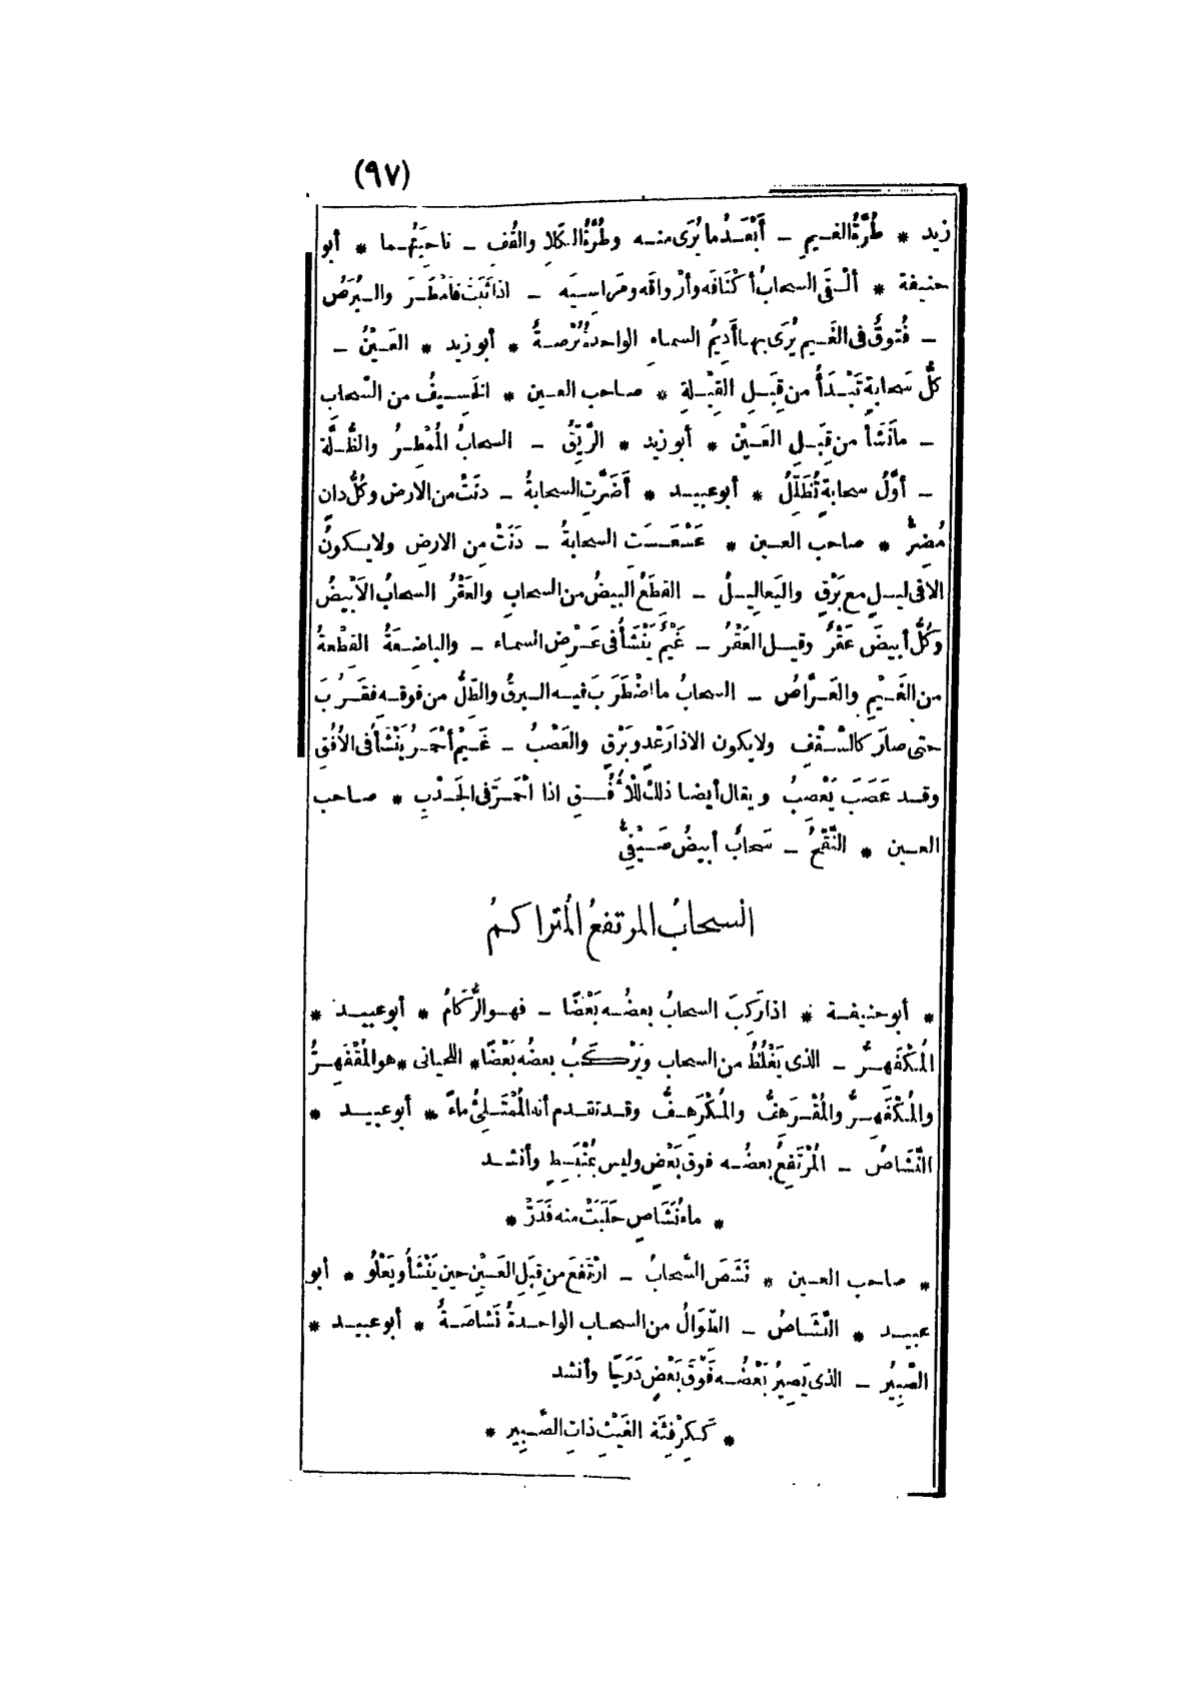 (٩٧)
زيد * طُرَّةُ الغيم - أَبْعَدُ ما يُرَى منه وطُرَّةُ الكَلإ والقُفِ - ناحِيَتُهما * أبو
حنيفة * ألْقَى السحابُ أكْنافَه وأرْواقَه ومَراسِيَه - اذا ثَبَتَ فأمْطَرَ والبُرَصُ
- فُتوقٌ فى الغَيم يُرَى بها أَدِيمُ السماءِ الواحدةُ بُرْصةٌ * أبو زيد * العَيْنُ -
كلُّ سَحابةٍ تَبْدَأُ من قِبَلِ القِبْلةِ * صاحب العين * الخَسِيفُ من السَّحاب
- مانَشَأ من قِبَلِ العَيْن * أبو زيد * الرَّيِّقُ - السحابُ المُمْطِرُ والظُّلَّة
- أوّلُ سحابةٍ تُظَلِّلُ * أبو عبيد * أَضَرَّتِ السحابةُ - دنَتْ من الارض وكُلُّ دانٍ
مُضِرٌّ * صاحب العين * عَسْعَسَت السحابةُ - دَنَتْ مِن الارضِ ولا يكونُ
الا فى ليلٍ مع بَرْقٍ واليَعاليلُ - القِطَعُ البيضُ من السحابِ والعَقْرُ السحابُ الاَبْيضُ
وكُلُّ أبيضَ عَقْرٌ وقيل العَقْرُ - غَيْمٌ يَنْشَأُ فى عَرْضِ السماء - والباضِعَةُ القِطْعةُ
من الغَيْمِ والعَرَّاصُ - السحابُ ما اضْطَرَبَ فيه البرقُ والظِّلُّ من فوقِه فقَرُبَ
حتى صارَ كالسَّقْفِ ولا يكون الا ذا رَعْدٍ وبَرْقٍ والعَصْبُ - غَيْمٌ أحْمَرُ يَنْشَأُ فى الاُفُقِ
وقد عَصَبَ يَعْصِبُ ويقال أيضا ذلك للاُفُقِ اذا أحْمَرَّ فى الجَدْبِ * صاحب
العين * النَّقَحُ - سَحابٌ أبيضُ صَيْفِىٌّ
السحابُ المرتفعُ المُتراكمُ
* أبو حنيفة * اذا رَكِبَ السحابُ بعضُه بَعْضًا - فهو الرُّكَامُ * أبو عبيد *
المُكْفَهِرُّ - الذى يَغْلُظُ من السحاب ويَرْكَبُ بعضُه بَعْضًا * اللحيانى * هو المُقْفَهِرُّ
والمُكْفَهِرُّ والمُقْرَهِفُّ والمُكْرَهِفُّ وقد تقدم أنه المُمْتَلِئُ ماءً * أبو عبيد *
النَّشَاصُ - المُرْتَفِعُ بعضُه فوقَ بَعْضٍ وليس بمُنْبَسِطٍ وأنشد
* ماءُ نَشَاصٍ حَلَبَتْ منه فَدَرّْ *
* صاحب العين * نَشَصَ السَّحابُ - ارْتَفعَ من قِبَلِ العَيْنِ حين يَنْشَأُ ويَعْلُو * أبو
عبيد * النَّشَاصُ - الطّوَالُ من السحاب الواحدةُ نَشاصَةٌ * أبو عبيد *
الصَّبِيُر - الذى يَصِيرُ بَعْضُه فَوْقَ بَعْضٍ دَرَجًا وأنشد
* كَكِرْفِئَة الغَيْثِ ذاتِ الصَّبِيرِ *